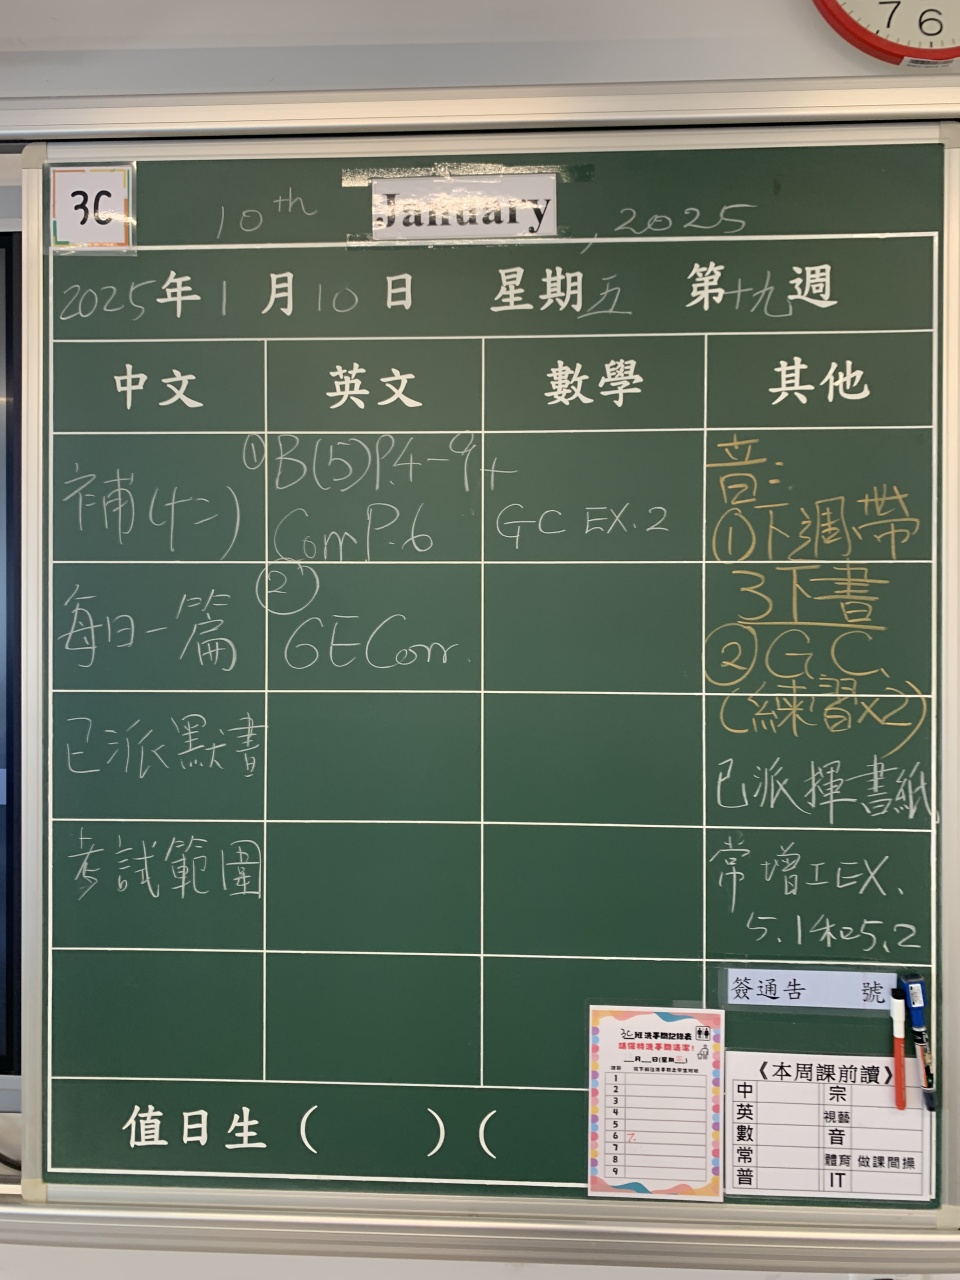 7 6
3C
10th January, 2025
2025年1月10日 星期五 第十九週
中文 英文 數學 其他
補(十二)
① B(5)P.4-9+
Com P.6
GC EX.2
音:
①下週帶
每日一篇
②
GE Corr.
3下書
②G.C.
(練習x2)
已派默書
已派揮書紙
考試範圍
常增工EX.
5.1和5.2
簽通告 號
值日生( )(
3C班洗手間記錄表
請保持洗手間清潔!
月 日(星期三)
1
2
3
4
5
6 7.
7
8
9
《本周課前讀》
中 宗
英 視藝
數 音
常 體育 做課間操
普 IT